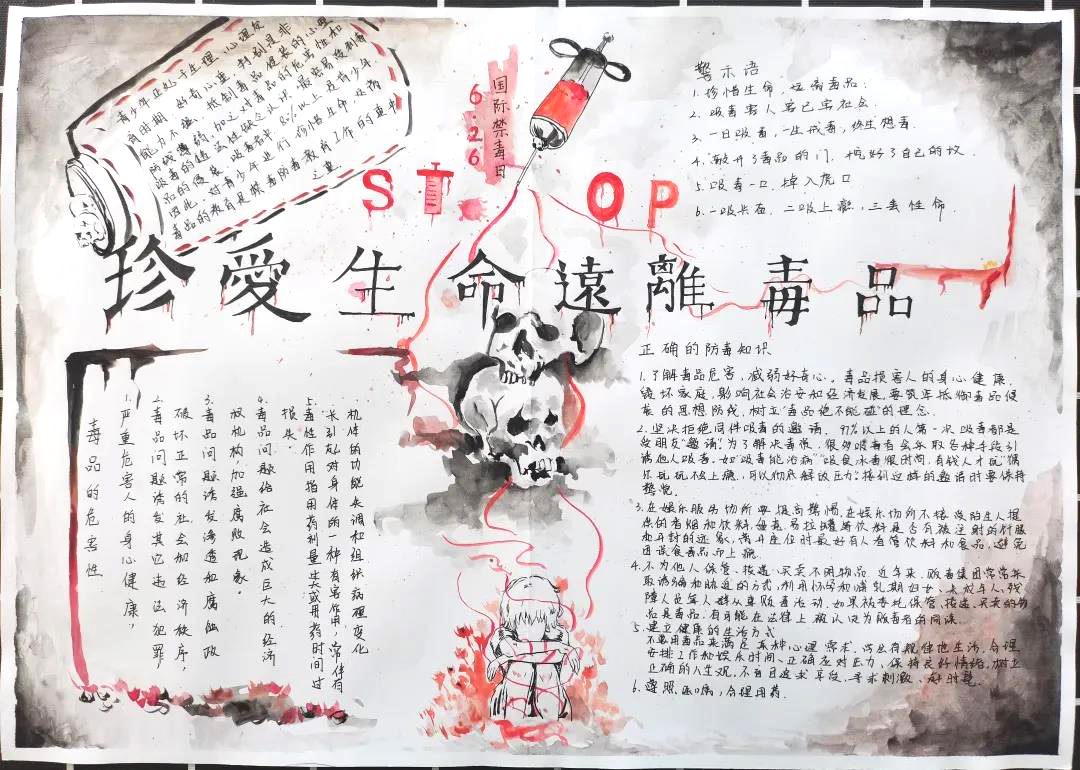 青少年正处于生理、心理发
育时期，好奇心重，判别是非
能力不强，抵制毒品侵袭的心理
防线薄弱，加之对毒品的危害性和
吸毒的违法性缺乏认识，最容易受到毒
品的侵袭，吸毒者中，80%以上是青少年，
因此，对青少年进行珍惜生命、远离
毒品的教育是禁毒防毒教育工作的重中
之重
6.26
国际禁毒日
ST OP
警示语
1.珍惜生命，远离毒品.
2.吸毒害人害己害社会.
3.一日吸毒，一生戒毒，终生想毒
4.敲开了毒品的门，挖好了自己的坟
5.吸毒一口，掉入虎口
6.一吸共在，二吸上瘾，三丢性命.
珍愛生命遠離毒品
毒品的危害性
1.严重危害人的身心健康，
2.毒品问题诱发其它违法犯罪，
破坏正常的社会和经济秩序，
3.毒品问题诱发渗透和腐蚀政
权机构加强腐败现象.
4.毒品问题给社会造成巨大的经济
损失.
5.毒性作用指用药剂量过大或用药时间过
长引起对身体的一种有害作用，常伴有
机体的功能失调和组织病理变化
正确的防毒知识
1.了解毒品危害，减弱好奇心。毒品损害人的身心健康，
破坏家庭，影响社会治安和经济发展，要筑牢抵御毒品侵
袭的思想防线，树立"毒品绝不能碰"的理念.
2.坚决拒绝同伴吸毒的邀请，97%以上的人第一次吸毒都是
受朋友"邀请"，为了解决毒源，很多吸毒者会采取各种手段引
诱他人吸毒，如"吸毒能治病""吸食冰毒很时尚，有钱人才玩""偶
尔玩玩不会上瘾，可以彻底解放压力"，接到这样的邀请时要保持
警觉.
3.在娱乐服务场所要提高警惕，在娱乐场所不接受陌生人提
供的香烟和饮料，检查易拉罐等饮料是否有被注射的针眼
和开封的迹象，离开座位时最好有人看管饮料和食品，避免
因误食毒品而上瘾.
4.不为他人保管、携运、买卖不明物品 近年来，贩毒集团常常采
取诱骗和胁迫的方式，利用怀孕和哺乳期妇女、未成年人、残
障人员等人群从事贩毒活动，如果被委托保管、携运、买卖的物
品是毒品，有可能在法律上被认定为贩毒者的同谋.
5.建立健康的生活方式
不要用毒品来满足某种心理需求，养成有规律地生活，合理
安排工作和娱乐时间、正确应对压力，保持良好情绪，树立
正确的人生观，不盲目追求享受、寻求刺激、赶时髦.
6.遵照医嘱，合理用药.